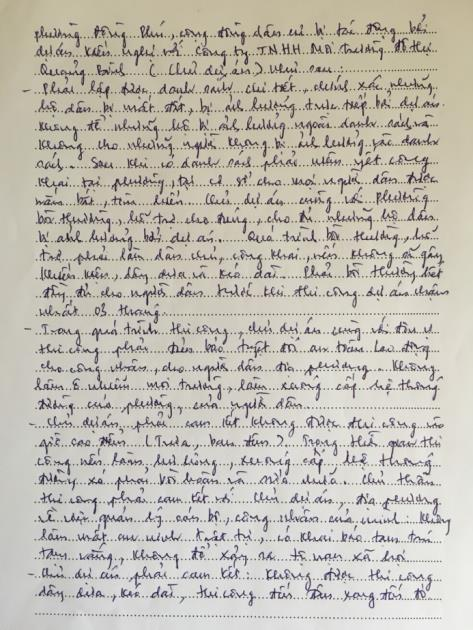 phường Đồng Phú, cộng đồng dân cư bị tác động bởi
dự án kiến nghị với Công ty TNHH MA trường đô thị
Quảng Bình (Chủ dự án) như sau:
- Phải lập được danh sách chi tiết, chính xác, những
hộ dân bị mất đất, bị ảnh hưởng trực tiếp bởi dự án
không để những hộ bị ảnh hưởng ngoài danh sách và
không cho những người không bị ảnh hưởng vào danh
sách. Sau khi có danh sách phải niêm yết công
khai tại phường, tại cơ sở cho mọi người dân được
nắm bắt, tìm hiểu. Chủ dự án cùng với Phường
bồi thường, hỗ trợ cho đúng, cho đủ những hộ dân
bị ảnh hưởng bởi dự án. Quá trình bồi thường, hỗ
trợ phải làm dân chủ, công khai, nếu không sẽ gây
khiếu kiện, dây dưa và kéo dài. Phải bồi thường hết
đầy đủ cho người dân trước khi thi công dự án chậm
nhất 03 tháng.
- Trong quá trình thi công, chủ dự án cùng với đơn vị
thi công phải đảm bảo tuyệt đối an toàn lao động
cho công nhân, cho người dân địa phương. Không
làm ô nhiễm môi trường, làm xuống cấp hệ thống
đường của phường, của người dân.
- Chủ dự án phải cam kết không được thi công vào
giờ cao điểm (Trưa, ban đêm). Trong thời gian thi
công nếu làm hư hỏng, xuống cấp hệ thống
đường xá phải bồi hoàn và sửa chữa. Chủ thầu
thi công phải cam kết với Chủ dự án, địa phương
về việc quản lý cán bộ, công nhân của mình. Không
làm mất an ninh trật tự, có khai báo tạm trú
tạm vắng, không để xảy ra tệ nạn xã hội
- Chủ dự án phải cam kết: Không được thi công
dây dưa, kéo dài, thi công đến đâu xong đến đó